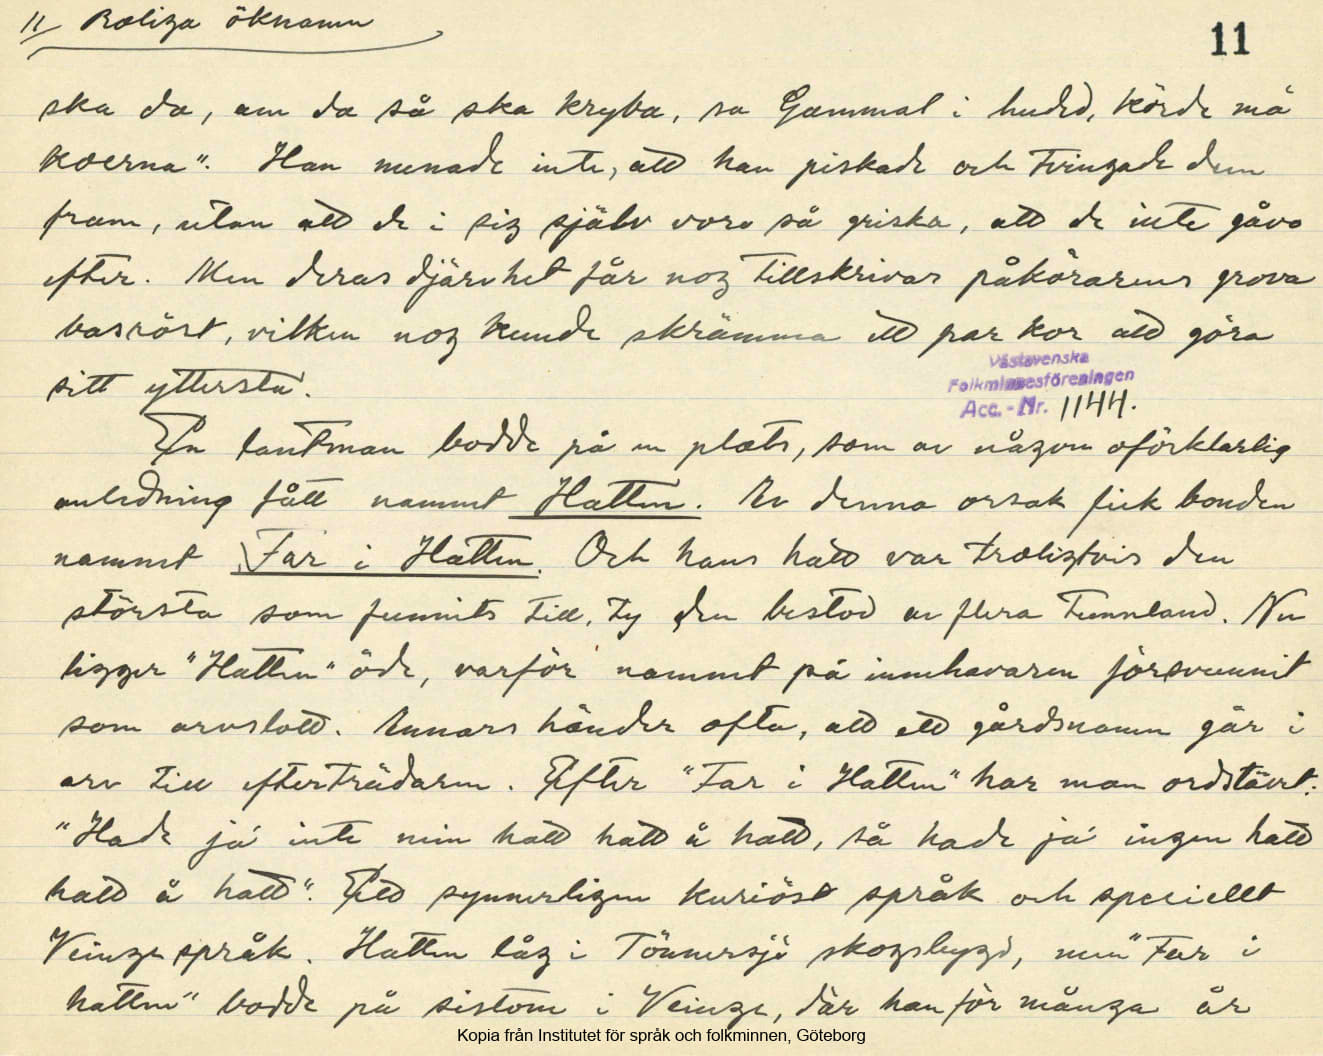 11/ Roliga öknamn
11
ska da, um da så ska kryba, sa Gammal i hudd, körde må
koerna". Han menade inte, att han piskade och tvingade dem
fram, utan att de i sig själv voro så griska, att de inte gåvo
efter. Men deras djärvhet får nog tillskrivas påkörarens grova
basröst, vilken nog kunde skrämma ett par kor att göra
sitt yttersta.
Västsvenska
Folkminnesföreningen
Acc.-Nr. 1144.
En lantman bodde på en plats, som av någon oförklarlig
anledning fått namnet Hatten. Av denna orsak fick bonden
namnet Far i Hatten. Och hans hatt var troligtvis den
största som funnits till, ty den bestod av flera tunnland. Nu
ligger "Hatten" öde, varför namnet på innehavaren försvunnit
som arvslott. Annars händer ofta, att ett gårdsnamn går i
arv till efterträdaren. Efter "Far i Hatten" har man ordstävet:
"Hade ja' inte min hatt hatt å hatt, så hade ja' ingen hatt
hatt å hatt". Ett synnerligen kuriöst språk och speciellt
Veinge språk. Hatten låg i Tönnersjö skogsbygd, men "Far i
hatten" bodde på sistone i Veinge, där han för många år
Kopia från Institutet för språk och folkminnen, Göteborg